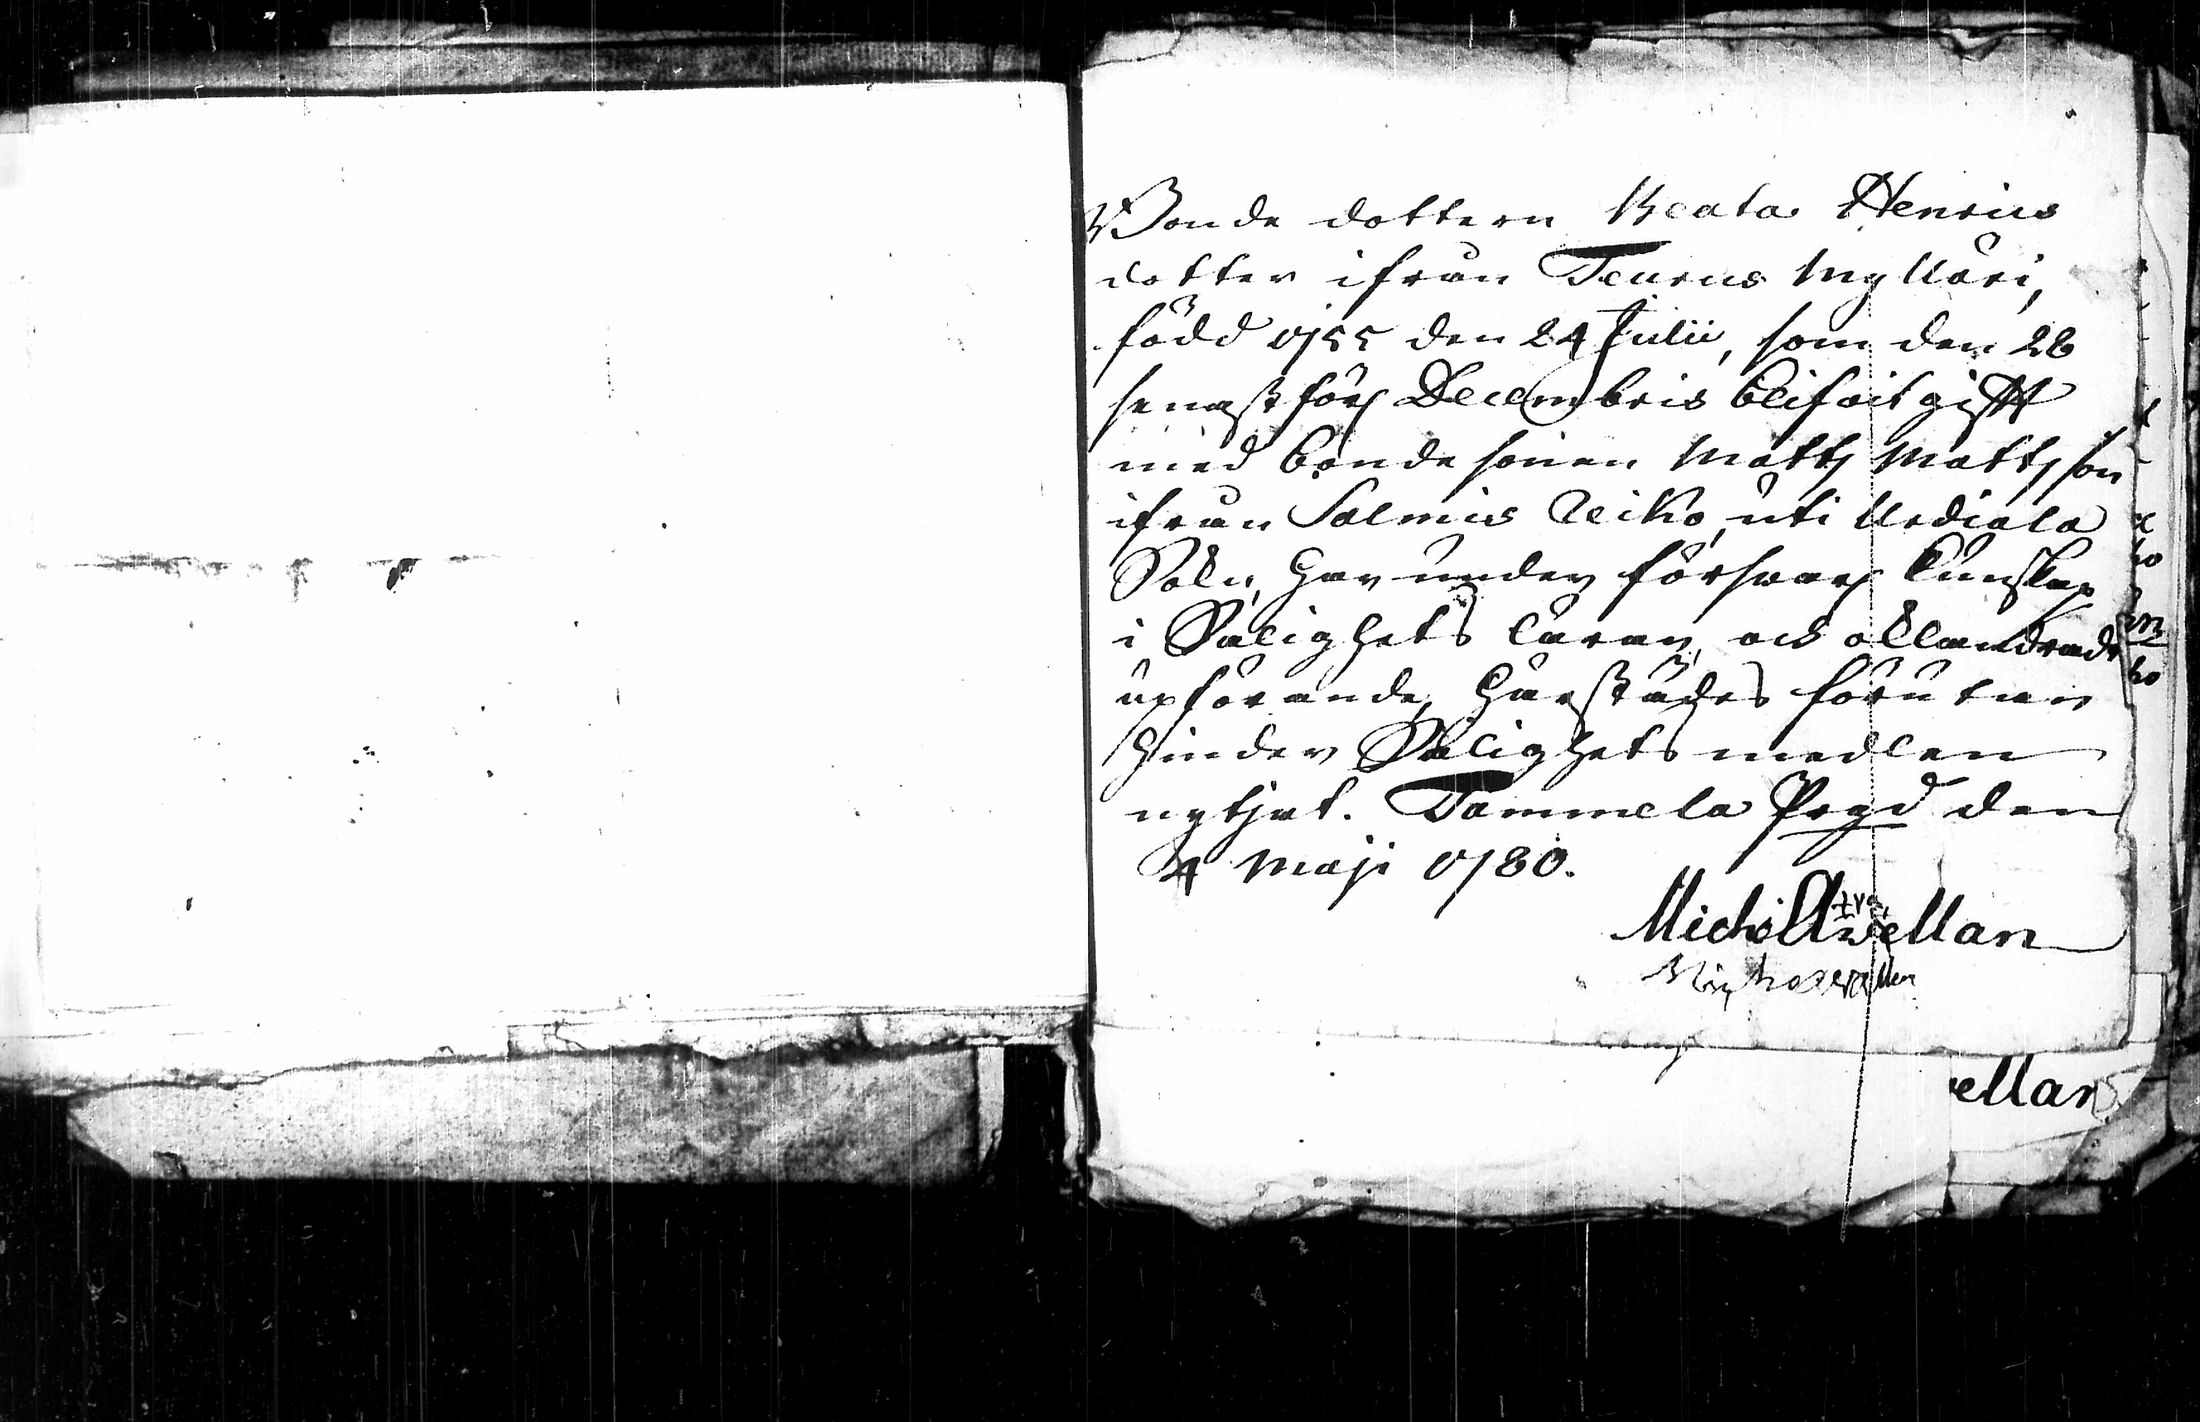 Bonde dottern Beata Henrics
dotter ifrån Teurus Myllari,
född 1755 den 24 Julii, som den 26
senast förl Decembris blifvit gift
med bondesonen Matts Mattsson
ifrån Salmis Seiko, uti Urdiala
Sokn, har under försvarl kunskap
i Salighets läran, och oklandradt
upförande, härstädes förutan
hinder Salighets medlen
nyttjat. Tammela Prgd den
4 Maji 1780.
Mich Avellan
Avellan
ellan